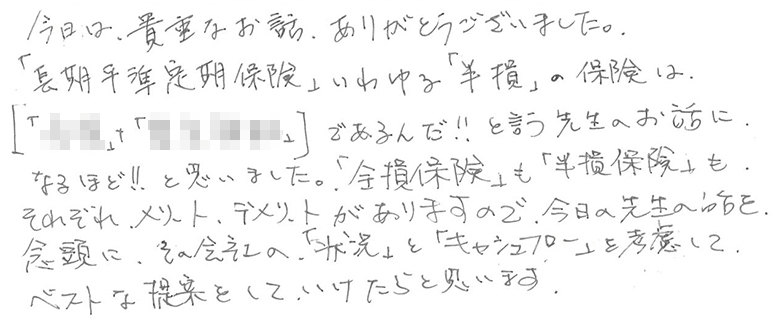 今日は、貴重なお話、ありがとうございました。
「長期平準定期保険」いわゆる「半損」の保険は、
[「」+「」]であるんだ!!と言う先生のお話に、
なるほど!!と思いました。「全損保険」も「半損保険」も、
それぞれ、メリット、デメリットがありますので、今日の先生の話を、
念頭に、その会社の、「状況」と「キャッシュフロー」を考慮して、
ベストな提案をして、いけたらと思います。